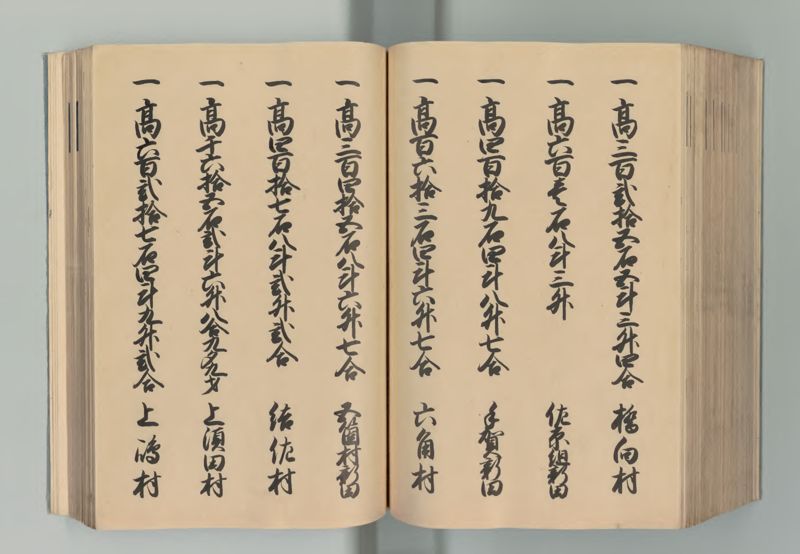 一 高三百弐拾五石五斗三升四合 橋向村
一 高六百壱石八斗三升 佐原組新田
一 高四百拾九石四斗八升七合 手賀新田
一 高百六拾三石四斗六升七合 六角村
一 高三百四拾五石八斗六升七合 五箇村新田
一 高四百拾七石八斗弐升弐合 結佐村
一 高千六拾五石弐斗六升八合九夕九才 上須田村
一 高六百弐拾七石四斗九升弐合 上嶋村